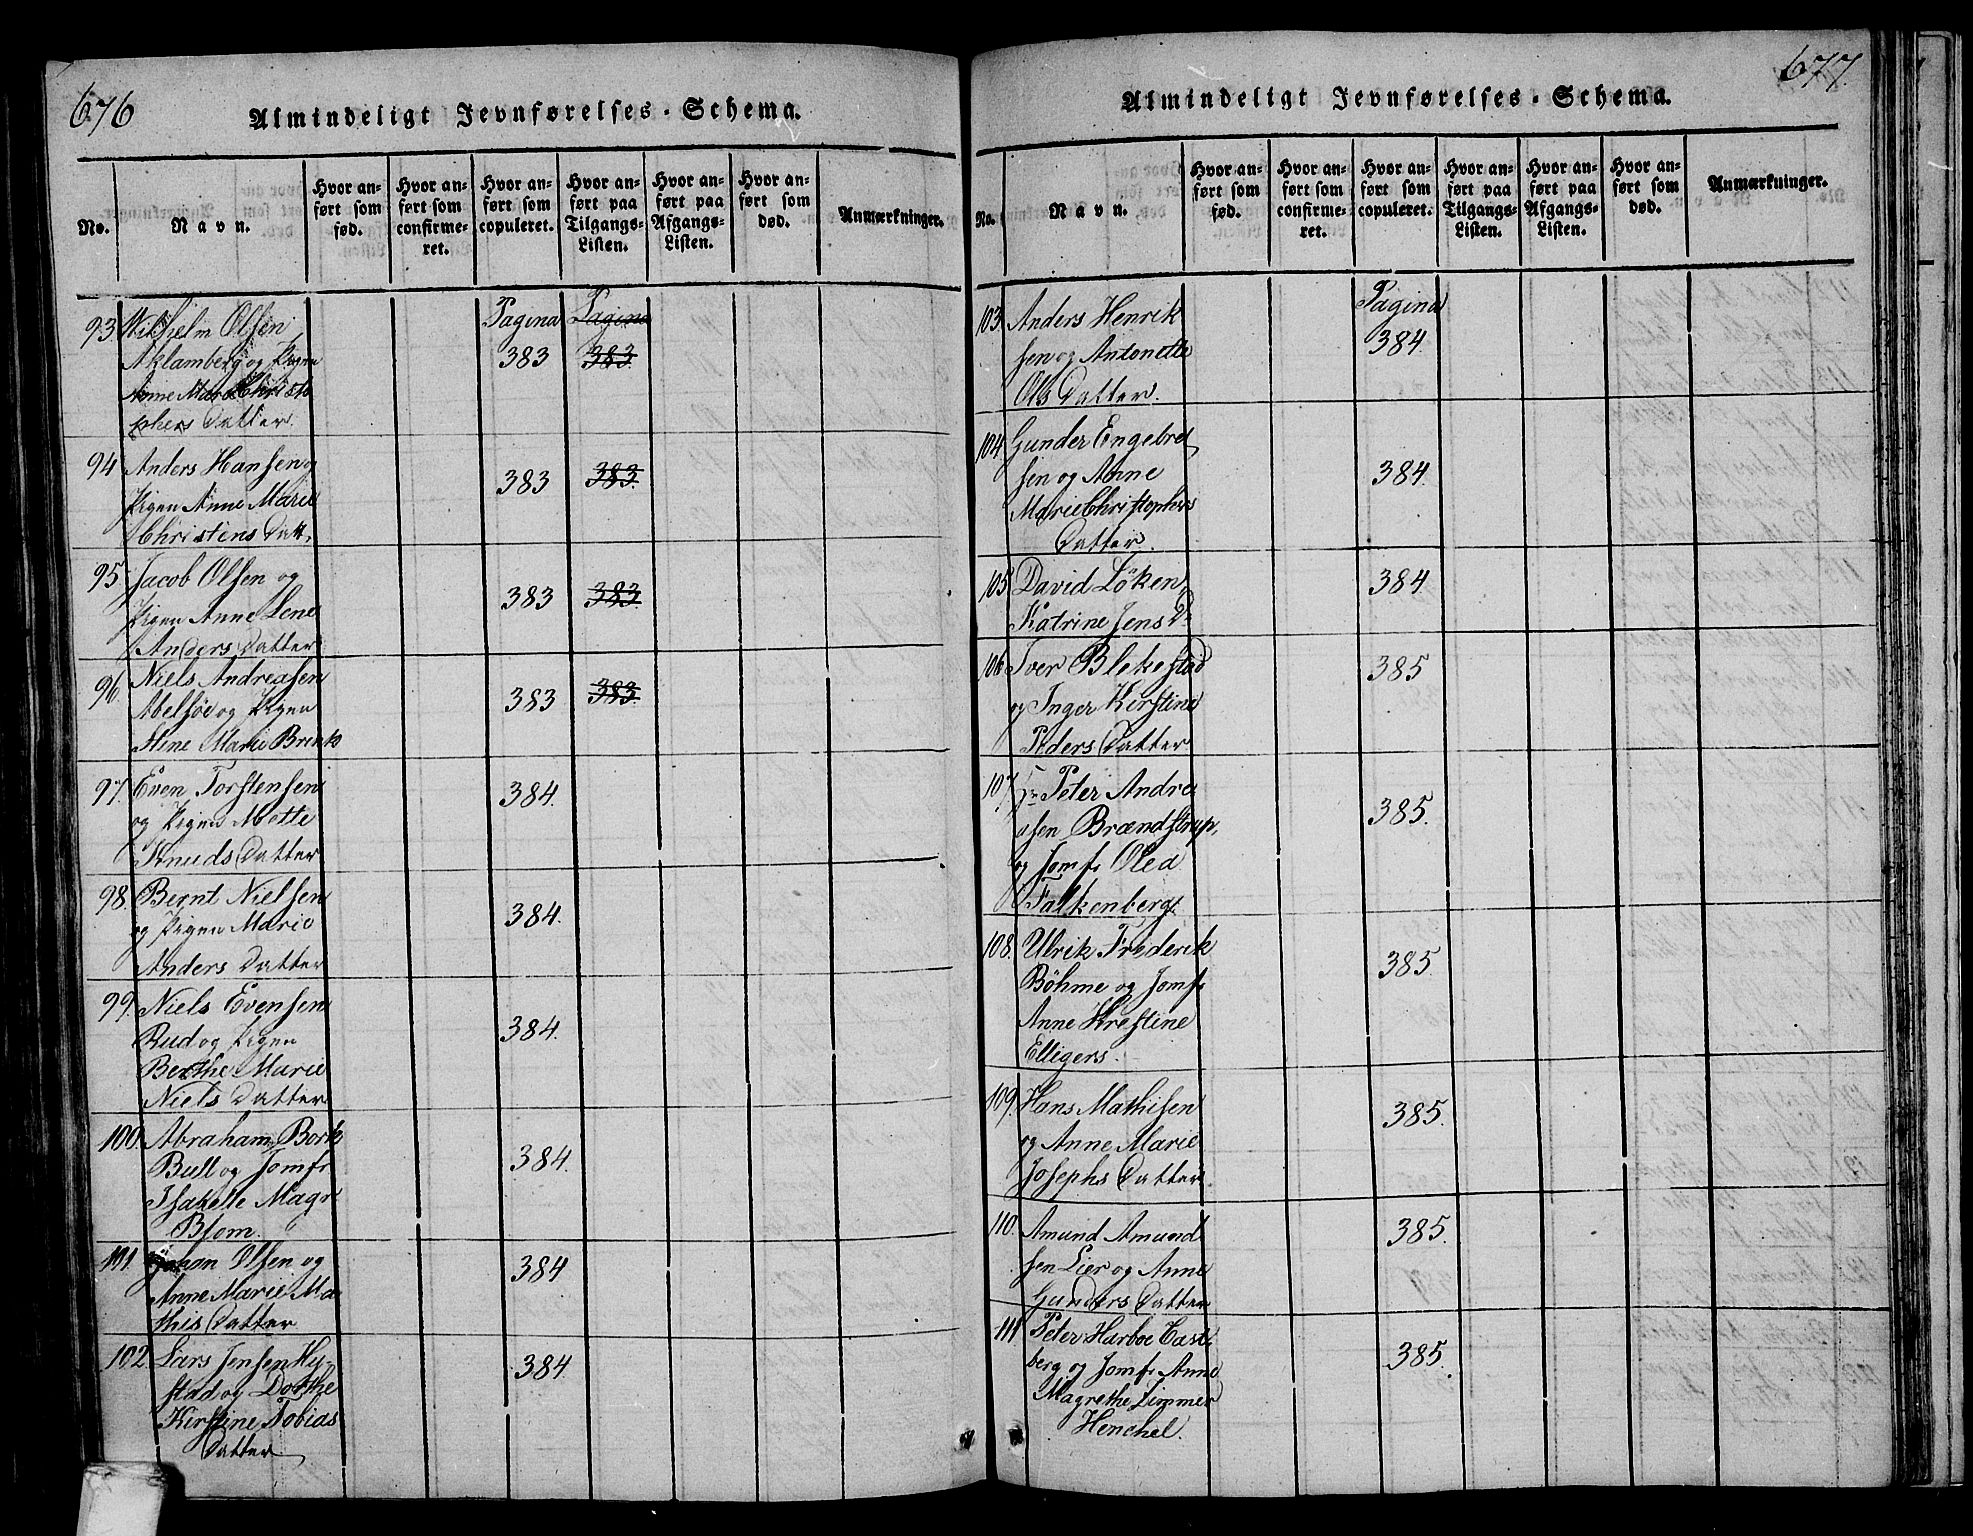 676
Almindeligt Jevnførelses-Schema.
No.
Navn.
Hvor anført som fød.
Hvor anført som confirmeret.
Hvor anført som copuleret.
Hvor anført paa Tilgangs-Listen.
Hvor anført paa Afgangs-Listen.
Hvor anført som død.
Anmærkninger.
93. Wilhelm Olsen Pagina Pagina
Aklamberg og Pigen 383 383
Anne Marie Christo
phers Datter.
94 Anders Hansen og
Pigen Anne Marie 383 383.
Christens Datt.
95 Jacob Olsen og
Pigen Anne Lene 383 383.
Anders Datter
96. Niels Andreasen
Abelsöe og Pigen 383 383.
Stine Marie Brink
97. Even Torstensen 384.
og Pigen Mette
Knuds Datter
98. Bernt Nielsen
og Pigen Marie 384.
Anders Datter
99. Niels Evensen
Rud og Pigen 384.
Berthe Marie
Niels Datter
100. Abraham Bork
Bull og Jomfr 384.
Isabelle Magr
Blom.
101. Johan Olsen og 384
Anne Marie Ma
this Datter
102. Lars Jensen Hy-
stad og Dorthe 384
Kirstine Tobias
Datter
677.
Almindeligt Jevnførelses-Schema.
No.
Navn.
Hvor anført som fød.
Hvor anført som confirmeret.
Hvor anført som copuleret.
Hvor anført paa Tilgangs-Listen.
Hvor anført paa Afgangs-Listen.
Hvor anført som død.
Anmærkninger.
103. Anders Henrik Pagina
sen og Antonette 384.
Ols Datter.
104. Gunder Engebret
sen og Anne 384.
Marie Christophers
Datter.
105 David Löken 384
Katrine Jens D
106 Iver Blekestad 385
og Inger Kirstine
Peders Datter
107 Hr Peter Andre
asen Brændstrup, 385.
og Jomfr Olea
Falkenberg.
108. Ulrik Frederik
Böhme og Jomfr 385.
Anne Krestine
Elligers.
109. Hans Mathisen 385.
og Anne Marie
Josephs Datter
110. Amund Amund 385.
sen Lier og Anne
Gunders Datter
111 Peter Harboe Cast
berg og Jomfr Anne 385.
Magrethe Zimmer
Henchel.